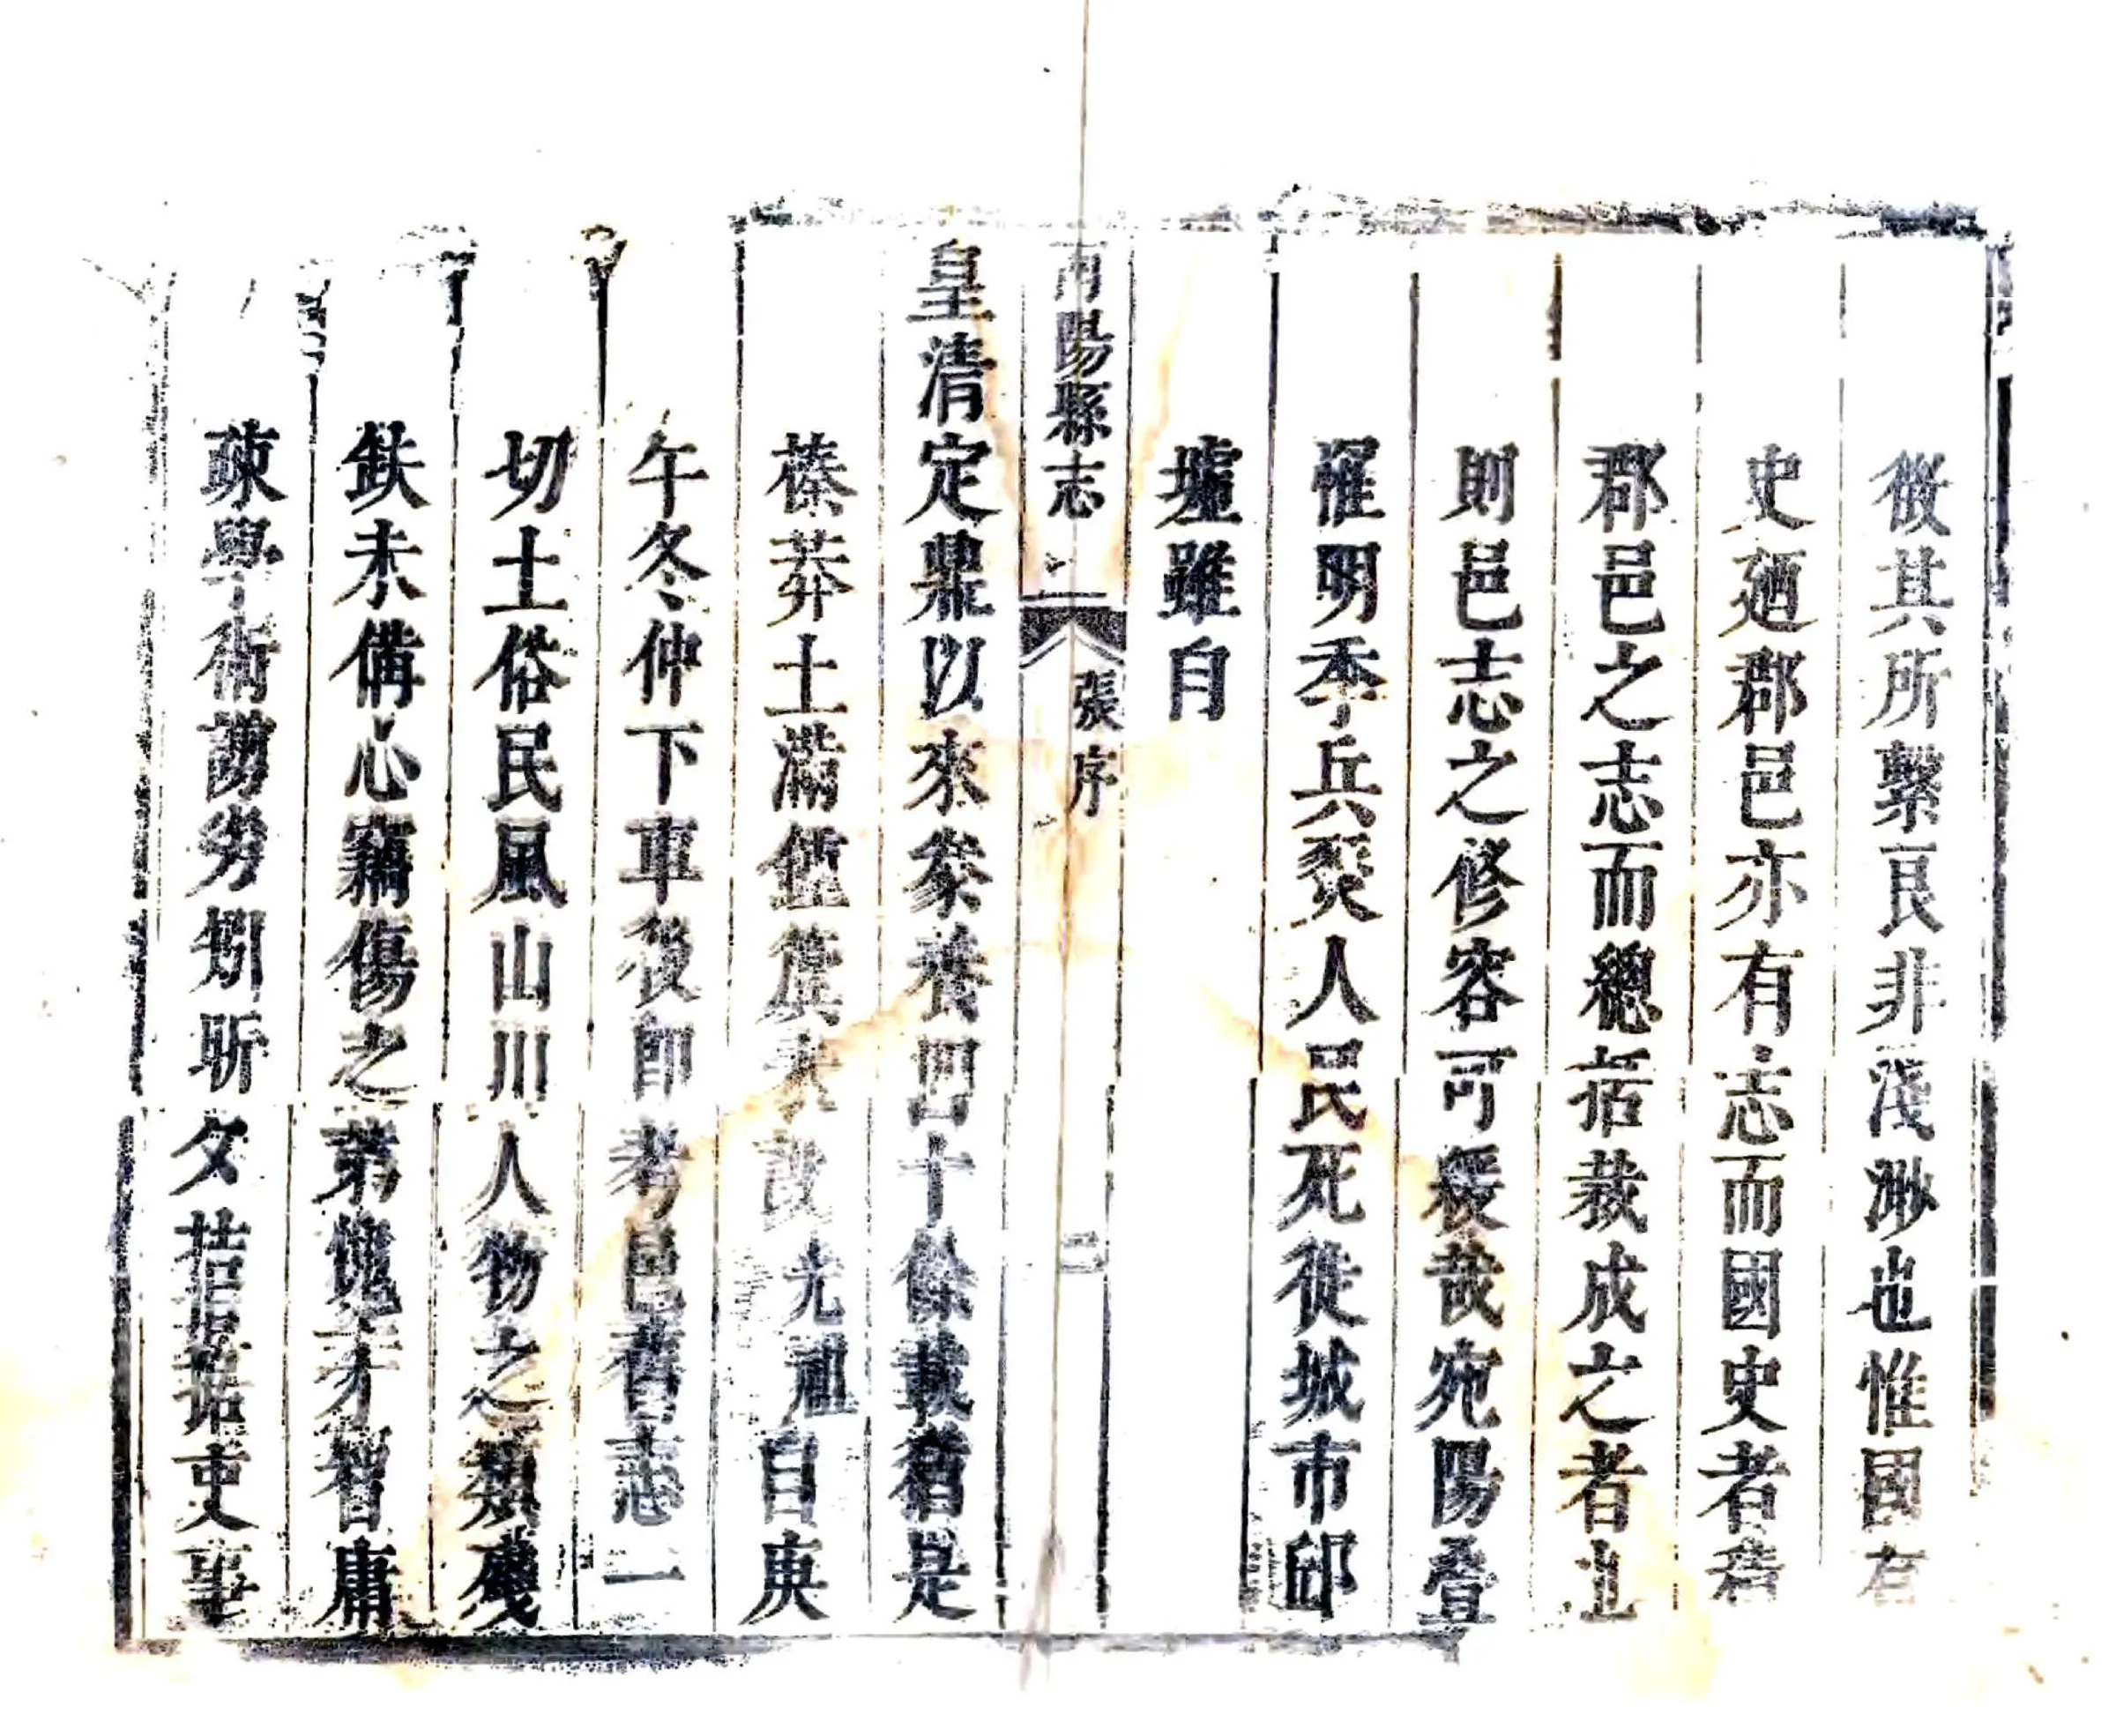 徵其所繫良非淺渺也惟國有
史廼郡邑亦有志而國史者
郡邑之志而總括裁成之者也
則邑志之修容可緩哉宛陽叠
罹明季兵燹人民死徙城市邱
墟雖自
南陽縣志
張序
二
皇清定鼎以來豢養四十餘載猶是
榛莽土滿
光祖自庚
午冬仲下車後即考邑舊志一
切土俗民風山川人物之類殘
缺未備心竊傷之第愧才智庸
疎學術謭劣矧昕夕拮据吏事